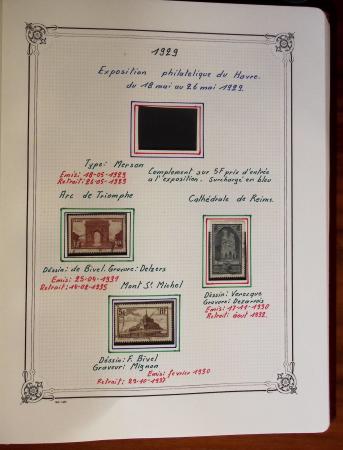 1929
Exposition philatelique du Havre.
du 18 mai au 26 mai 1929.
Type: Merson
Emis: 18-05-1929
Retrait: 26-05-1929
Complement sur 5F prix d'entrée
a l'exposition. Surchargé en bleu
Arc de Triomphe
Cathédrale de Reims.
Déssin: de Bivel. Gravure: Delzers
Emis: 25-04-1931
Retrait: 14-02-1935
Mont St Michel
Déssin: Verecque
Graveur: Dezarrois
Emis: 17-11-1930
Retrait: aout 1932.
Déssin: F. Bivel
Graveur: Mignon
Emis: fevrier 1930
Retrait: 29-10-1937